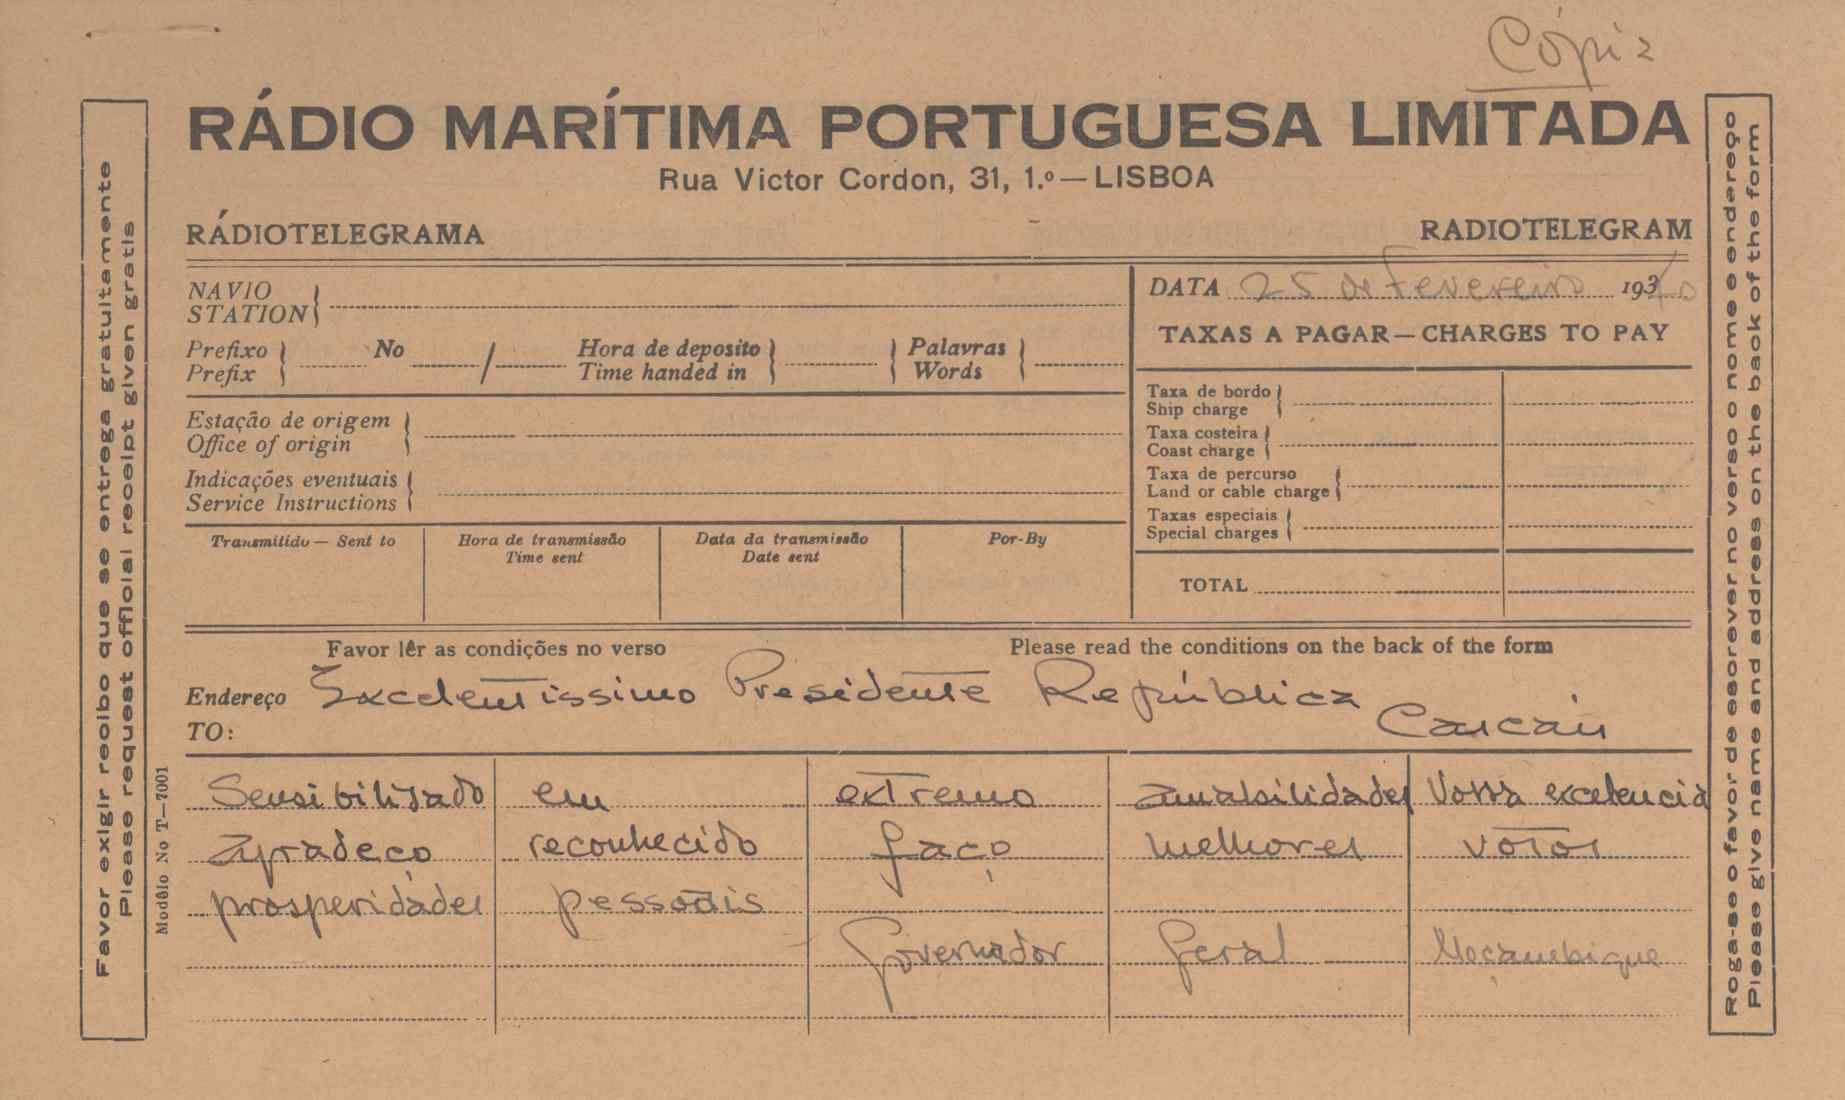 Cópia
RÁDIO MARÍTIMA PORTUGUESA LIMITADA
Rua Victor Cordon, 31, 1.º — LISBOA
RÁDIOTELEGRAMA RADIOTELEGRAM
NAVIO
STATION
DATA 25 de Fevereiro 1940
Prefixo No / Hora de deposito Palavras
Prefix Time handed in Words
TAXAS A PAGAR — CHARGES TO PAY
Estação de origem
Office of origin
Indicações eventuais
Service Instructions
Taxa de bordo
Ship charge
Taxa costeira
Coast charge
Taxa de percurso
Land or cable charge
Taxas especiais
Special charges
TOTAL
Transmitido — Sent to Hora de transmissão Data da transmissão Por-By
Time sent Date sent
Favor lêr as condições no verso Please read the conditions on the back of the form
Endereço Excelentissimo Presidente República
TO: Cascais
Sensibilisado em extremo amabilidades Vossa excelencia
agradeço reconhecido faço melhores votos
prosperidades pessoais
Governador Geral Moçambique
Favor exigir recibo que se entrega gratuitamente
Please request official receipt given gratis
Modêlo No T—7001
Roga-se o favor de escrever no verso o nome e endereço
Please give name and address on the back of the form